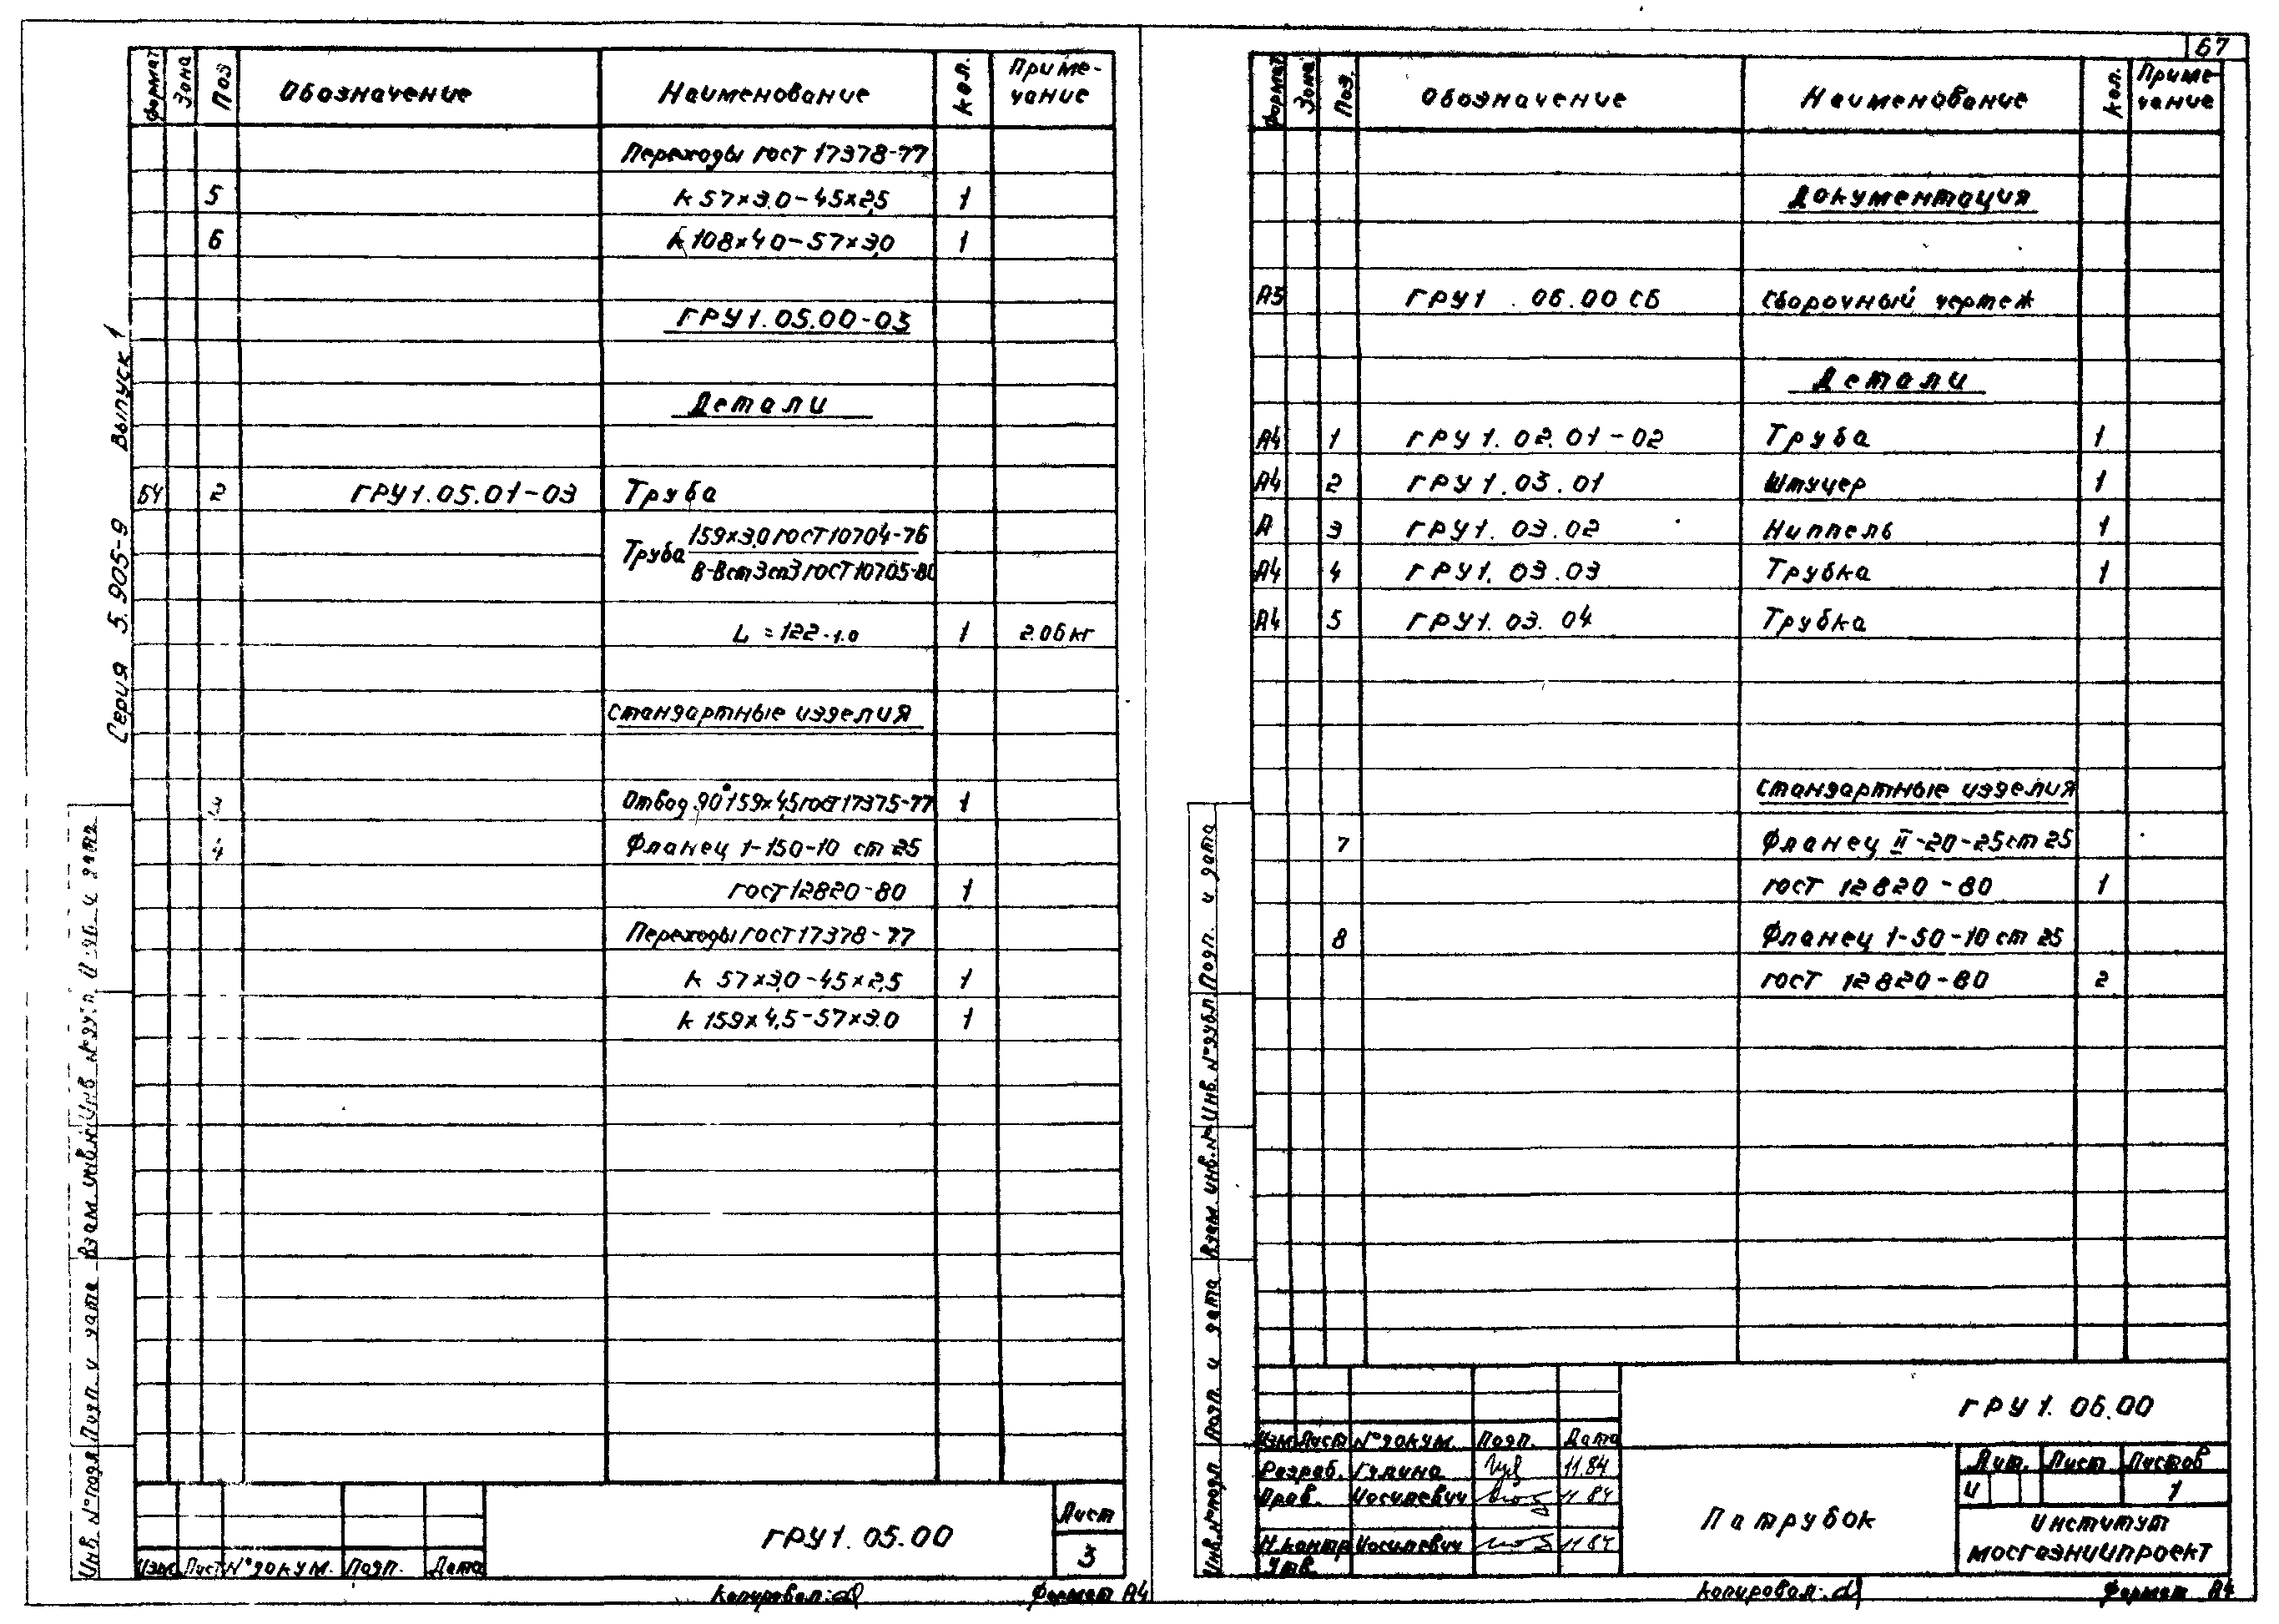 67
Серия 5.905-9 Выпуск 1
Формат Зона Поз Обозначение Наименование Кол. Приме-
чание
Переходы ГОСТ 17378-77
5 К 57×3.0-45×2,5 1
6 К 108×4.0-57×3,0 1
ГРУ1.05.00-03
Детали
БЧ 2 ГРУ1.05.01-03 Труба
Труба 159×3,0 ГОСТ 10704-76
В-Вст3сп3 ГОСТ 10705-80
L = 122-1.0 1 2.06кг
Стандартные изделия
3 Отвод 90° 159×4,5 ГОСТ 17375-77 1
4 Фланец 1-150-10 ст 25
ГОСТ 12820-80 1
Переходы ГОСТ 17378-77
К 57×3,0-45×2,5 1
К 159×4,5-57×3.0 1
Инв. № подл. Подп. и дата Взам инв. № Инв № дубл. Подп. и дата
Изм Лист № докум. Подп. Дата
ГРУ1.05.00
Лист
3
Копировал:
Формат А4
Формат Зона Поз. Обозначение Наименование Кол. Приме-
чание
Документация
А5 ГРУ1.06.00 СБ Сборочный чертеж
Детали
А4 1 ГРУ1.02.01-02 Труба 1
А4 2 ГРУ1.03.01 Штуцер 1
А 3 ГРУ1.03.02 Ниппель 1
А4 4 ГРУ1.03.03 Трубка 1
А4 5 ГРУ1.03.04 Трубка
Стандартные изделия
7 Фланец II-20-25 ст 25
ГОСТ 12820-80 1
8 Фланец 1-50-10 ст 25
ГОСТ 12820-80 2
Инв. № подл Подп. и дата Взам инв. № Инв. № дубл. Подп. и дата
Изм Лист № докум. Подп. Дата
Разраб. 11.84
Пров. Иосилевич 11.84
Н.контр Иосилевич 11.84
Утв.
ГРУ1.06.00
Патрубок
Лит. Лист Листов
И 1
Институт
МОСГАЗНИИПРОЕКТ
Копировал:
Формат А4